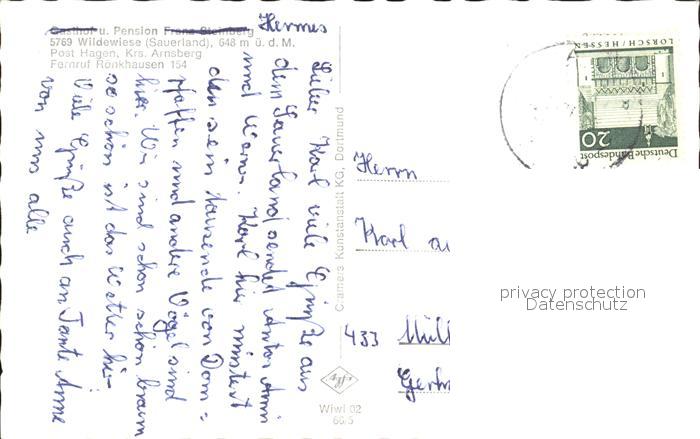 Gasthof u. Pension Franz Steinberg
Hermes
5769 Wildewiese (Sauerland), 648 m ü. d. M.
Post Hagen, Krs. Arnsberg
Fernruf Rönkhausen 154
Lieber Karl viele Grüße aus
dem Sauerland sendet Anton Anni
und Karl hier müsstest
den sein tausende von Dom=
pfaffen und andere Vögel sind
hier. Wir sind schon schön braun
so schön ist das Wetter hier
Viele Grüße auch an Tante Anne
von uns alle
Cramers Kunstanstalt KG., Dortmund
Herrn
Karl
433 Mül
Wiwi 02
66/5
LORSCH/HESSEN
20
Deutsche Bundespost
privacy protection
Datenschutz